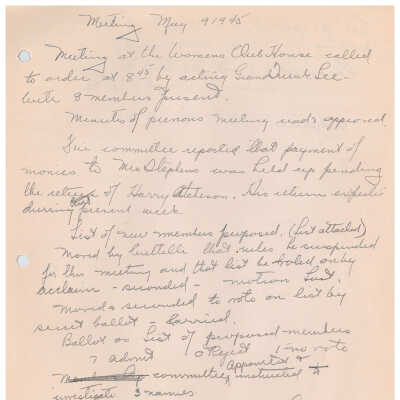 Meeting May 9 1945
Meeting at the Womens Club House called
to order at 8 45 by acting Grand Duck Lee
with 8 members present.
Minutes of previous meeting read & approved.
committee reported that payment of
monies to Mrs Stephens was held up pending
the return of Harry. His return expected
during present week.
List of new members proposed. (List attached)
Moved by that rules be suspended
for this meeting and that list be voted on by
acclaim - seconded - motion Lost.
Moved & seconded to vote on list by
secret ballot - Carried.
Ballot on List of proposed members
7 admit 0 Reject 1 no vote
Appointed &
committee instructed to
investigate 3 names